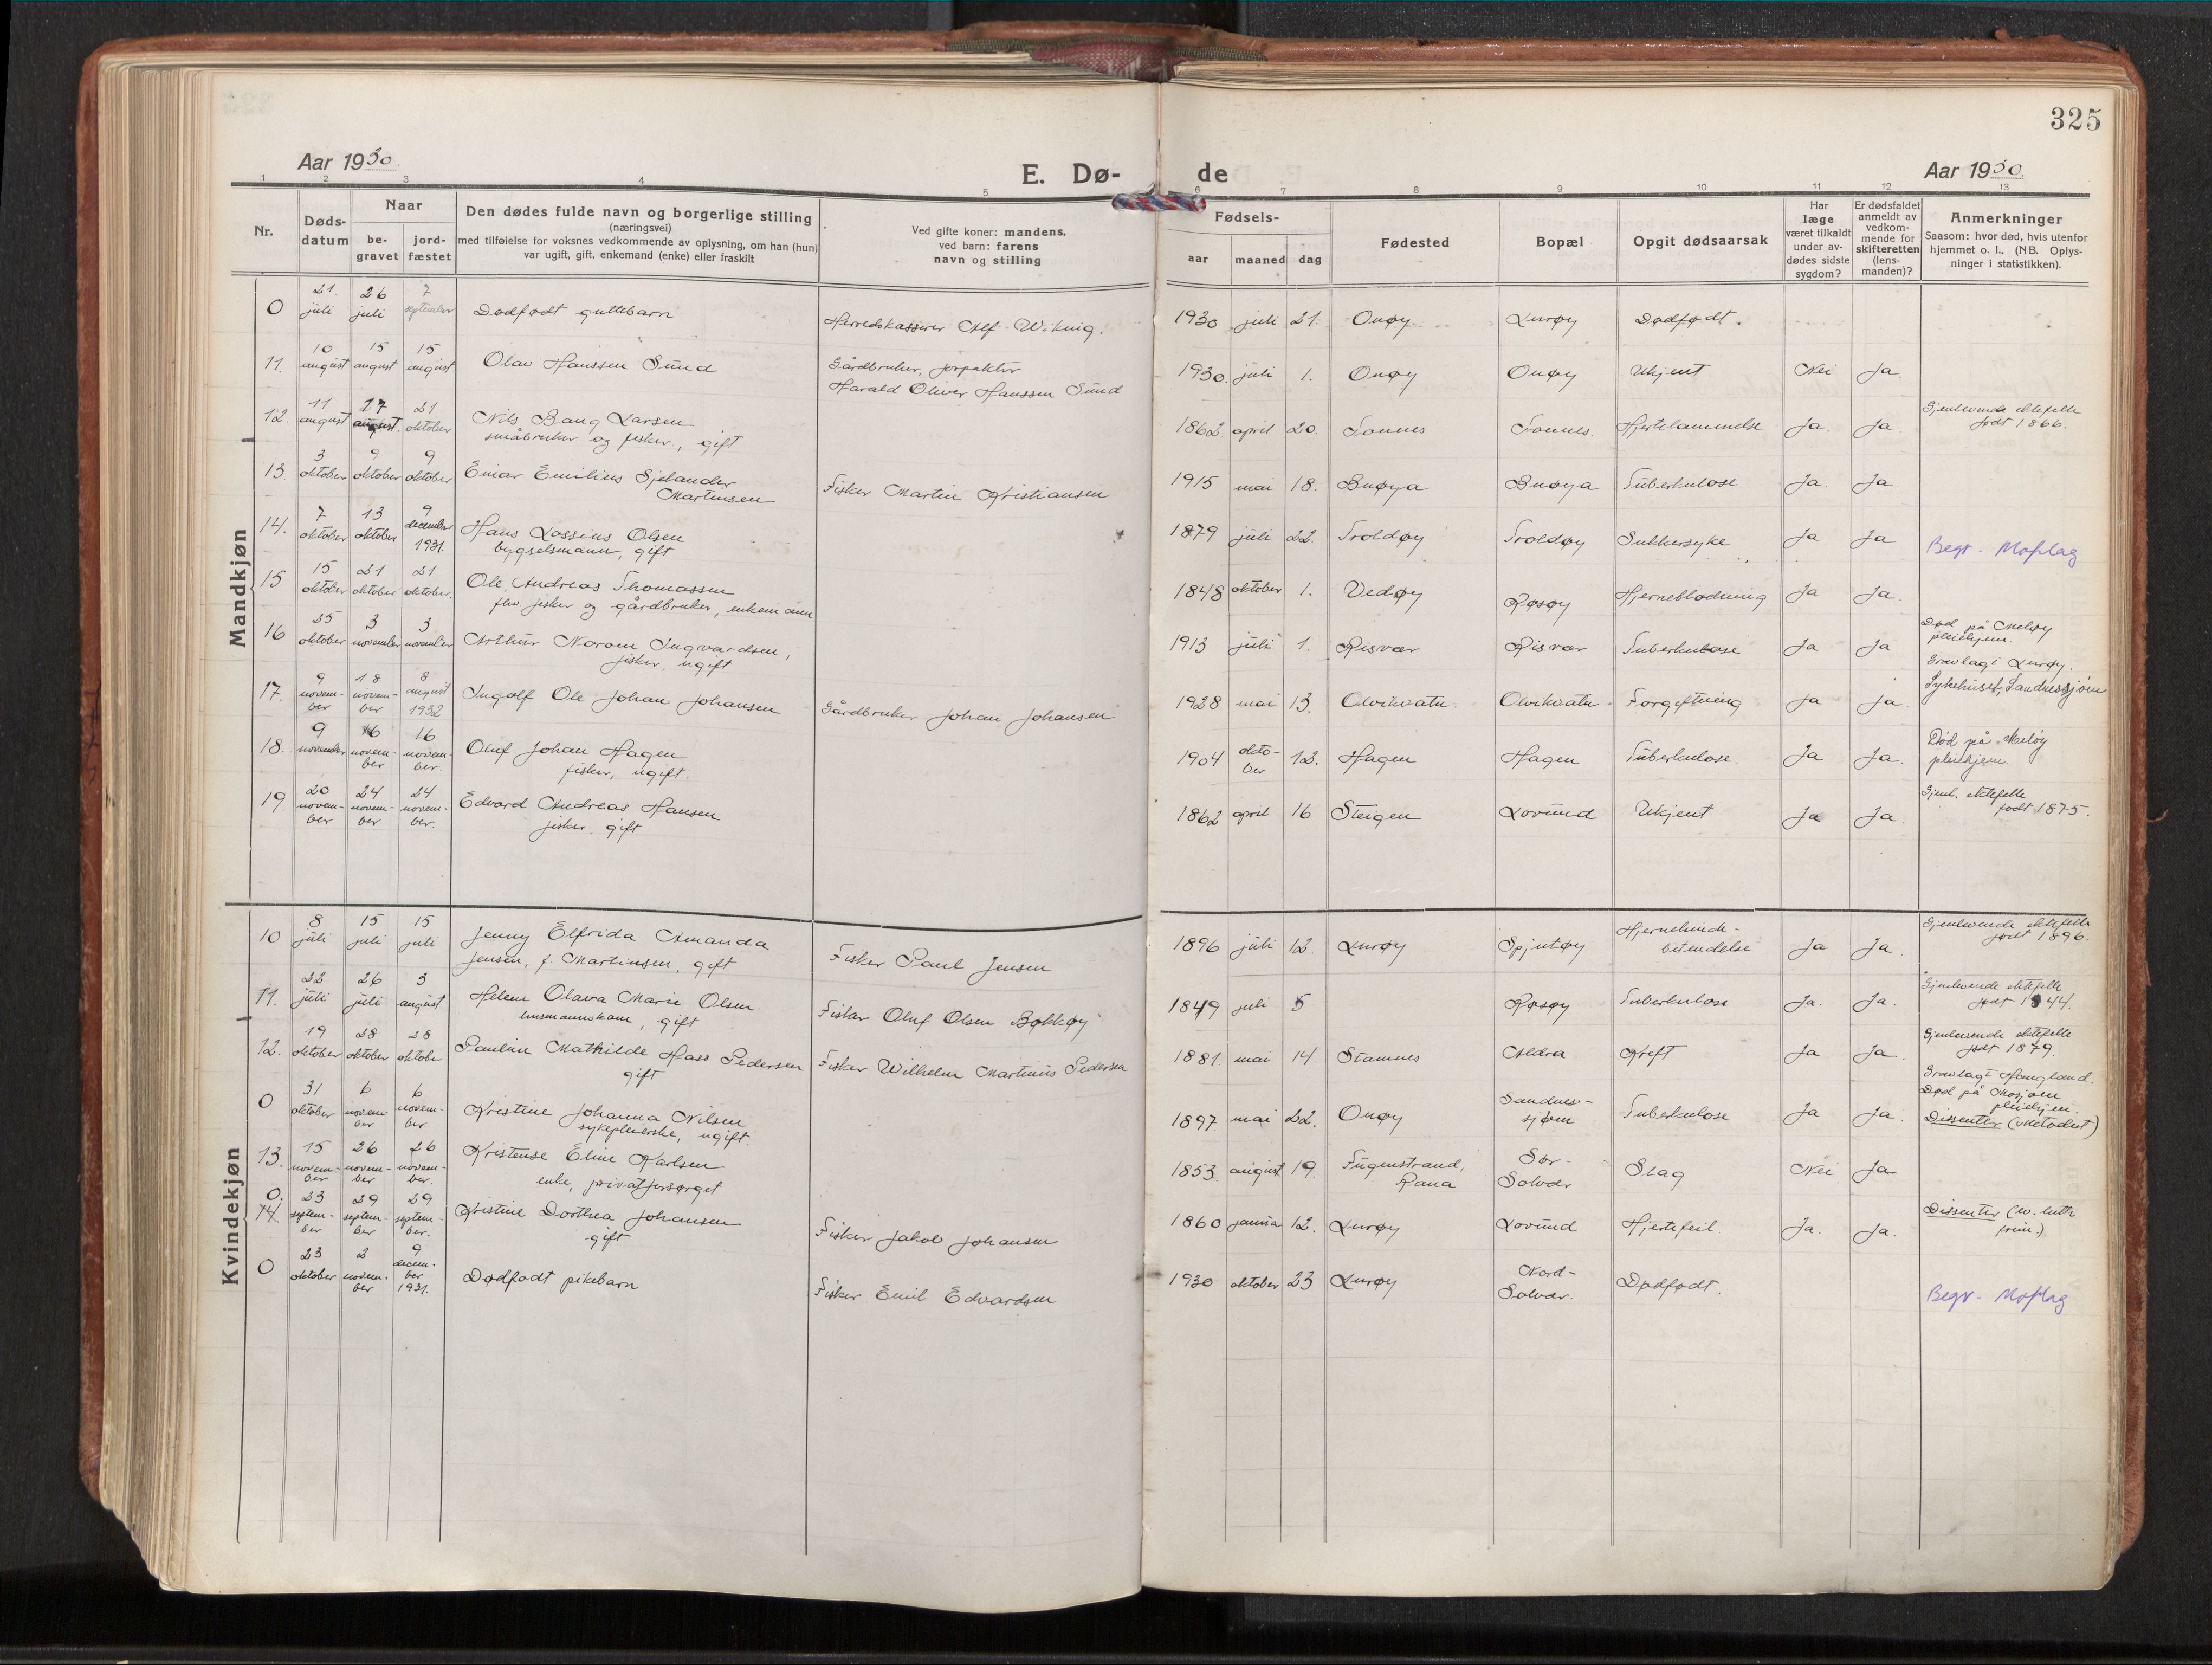 325
Aar 1930.
E. Dø-
de
Aar 1930.
1 2 3 4 5 6 7 8 9 10 11 12 13
Nr.
Døds-
datum
Naar
be-
gravet
jord-
fæstet
Den dødes fulde navn og borgerlige stilling
(næringsvei)
med tilføielse for voksnes vedkommende av oplysning, om han (hun)
var ugift, gift, enkemand (enke) eller fraskilt
Ved gifte koner: mandens,
ved barn: farens
navn og stilling
Fødsels-
aar maaned dag
Fødested
Bopæl
Opgit dødsaarsak
Har
læge
været tilkaldt
under av-
dødes sidste
sygdom?
Er dødsfaldet
anmeldt av
vedkom-
mende for
skifteretten
(lens-
manden)?
Anmerkninger
Saasom: hvor død, hvis utenfor
hjemmet o. l.. (NB. Oplys-
ninger i statistikken).
Mandkjøn
0 21 juli 26 juli 7 september Dødfødt guttebarn Herredskasserer Alf Wiknig. 1930 juli 21. Onøy Lurøy Dødfødt.
11. 10 august 15 august 15 august Olav Hanssen Sund Gårdbruker, forpakter
Harald Oliver Hanssen Sund 1930. juli 1. Onøy Onøy Ukjent Nei Ja.
12. 11 august 17 august. 21 oktober Nils Bang Larsen
småbruker og fisker, gift 1862. april 20. Tonnes Tonnes. Hjertelammelse Ja. Ja. Gjenlevende ektefelle
født 1866.
13. 3 oktober 9 oktober 9 oktober Einar Emilius Sjelander
Martinsen Fisker Martin Kristiansen 1915 mai 18. Buøya Buøya Tuberkulose Ja. Ja.
14. 7 oktober 13 oktober 9 december 1931. Hans Lossius Olsen
bygselsmann, gift 1879 juli 22. Troldøy Troldøy Sukkersyke Ja Ja Begr. Moflag
15 15 oktober 21 oktober 21 oktober. Ole Andreas Thomassen
fhv. fisker og gårdbruker, enkemann 1848 oktober 1. Vedøy Røsøy Hjerneblødning Ja Ja.
16 25 oktober 3 november 3 november Arthur Norom Ingvardsen,
fisker, ugift 1913 juli 1. Risvær Risvær Tuberkulose Ja Ja Død på Meløy
pleiehjem.
Gravlagt i Lurøy.
17. 9 novem-
ber 18 novem-
ber 8 august 1932 Ingolf Ole Johan Johansen Gårdbruker Johan Johansen 1928 mai 13. Olvikvatn. Olvikvatn Forgiftning Ja ja Sykehuset, Sandnessjøen
18. 9 november 16 novem-
ber 16 novem-
ber. Oluf Johan Hagen
fisker, ugift. 1904 okto-
ber 12. Hagen Hagen Tuberkulose. Ja Ja. Død på Meløy
pleiehjem
19. 20 novem-
ber 24 novem-
ber 24 novem-
ber. Edvard Andreas Hansen
fisker, gift 1862 april 16 Steigen Lovund Ukjent Ja Ja. Gjenl. ektefelle
født 1875.
Kvindekjøn
10 8 juli 15 juli 15 juli Jenny Elfrida Amanda
Jensen, f. Martinsen, gift Fisker Paul Jensen 1896 juli 12. Lurøy Spjutøy Hjernehinde-
betendelse Ja Ja. Gjenlevende ektefelle
født 1896.
11. 22 juli 26 juli 3 august Helene Olava Marie Olsen
husmannskone, gift Fisker Oluf Olsen Bokkøy 1849 juli 5 Røsøy Tuberkulose Ja. Ja. Gjenlevende ektefelle
født 1844.
12. 19 oktober 28 oktober 28 oktober Pauline Mathilde Hass Pedersen
gift Fisker Wilhelm Martinus Pedersen 1881. mai 14. Stamnes Aldra Kreft Ja Ja. Gjenlevende ektefelle
født 1879.
Gravlagt Haugland.
0 31 oktober 6 novem-
ber 6 novem-
ber Kristine Johanna Nilsen
sykepleierske, ugift. 1897 mai 22. Onøy Sandnes-
sjøen Tuberkulose Ja Ja. Død på Mosjøen
pleiehjem.
Dissenter (Metodist)
13. 15 novem-
ber 26 novem-
ber 26 novem-
ber. Kristense Eline Karlsen
enke, privat forsørget 1853. august 19. Fugenstrand,
Rana Sør-
Solvær Slag Nei Ja
0. 14 23 septem-
ber 29 septem-
ber 29 septem-
ber. Kristine Dorthea Johansen
gift Fisker Jakob Johansen 1860 januar 12. Lurøy Lovund Hjertefeil. Ja. Ja. Dissenter (ev. luth
frim.)
0 23 oktober 2 novem-
ber 9 decem-
ber 1931. Dødfødt pikebarn Fisker Emil Edvardsen 1930 oktober 23 Lurøy Nord-
Solvær. Dødfødt. Begr. Moflag